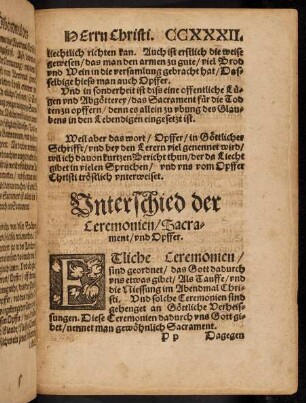 HErrn Christi. CCXXXII.
liechtlich richten kan. Auch ist erstlich die weise
gewesen/das man den armen zu gute/viel Brod
vnd Wein in die versamlung gebracht hat/Das-
selbige hies man auch Opffer.
Und in sonderheit ist diss eine offentliche Lü-
gen vnd Abgötterey/das Sacrament für die Tod-
ten zu opffern/denn es allein zu vbung des Glau-
bens in den Lebendigen eingesetzt ist.
Weil aber das wort/Opffer/in Göttlicher
Schrifft/vnd bey den Lerern viel genennet wird/
wil ich dauon kurtzen Bericht thun/der da Liecht
gibet in vielen Spruchen/vnd vns vom Opffer
Christi tröstlich vnterweiset.
Unterschied der
Ceremonien/Sacra-
ment/vnd Opffer.
ETliche Ceremonien/
sind geordnet/das Gott dadurch
vns etwas gibet/Als Tauffe/vnd
die Niessung im Abendmal Chri-
sti. Und solche Ceremonien sind
gehenget an Göttliche Verheis-
sungen. Diese Ceremonien dadurch vns Gott gi-
bet/nennet man gewöhnlich Sacrament.
P p Dagegen